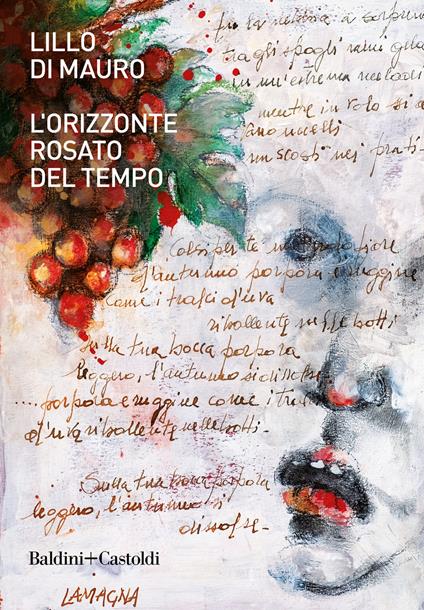 LILLO
DI MAURO
L'ORIZZONTE
ROSATO
DEL TEMPO
fu la nebbia a sorprend
tra gli spogli rami
in un'estrema melodi
mentre in volo si a
uccelli
nascosti nei prati-
Colsi per te fiore
d'autunno porpora e ruggine
come i tralci d'uva
ribollente nelle botti
sulla tua bocca porpora
leggero, l'autunno si dissolse
.... porpora e ruggine come i tral
d'uva ribollente nelle botti-
Sulla tua bocca porpora
leggero, l'autunno si
dissolse-
Baldini+Castoldi
LAMAGNA